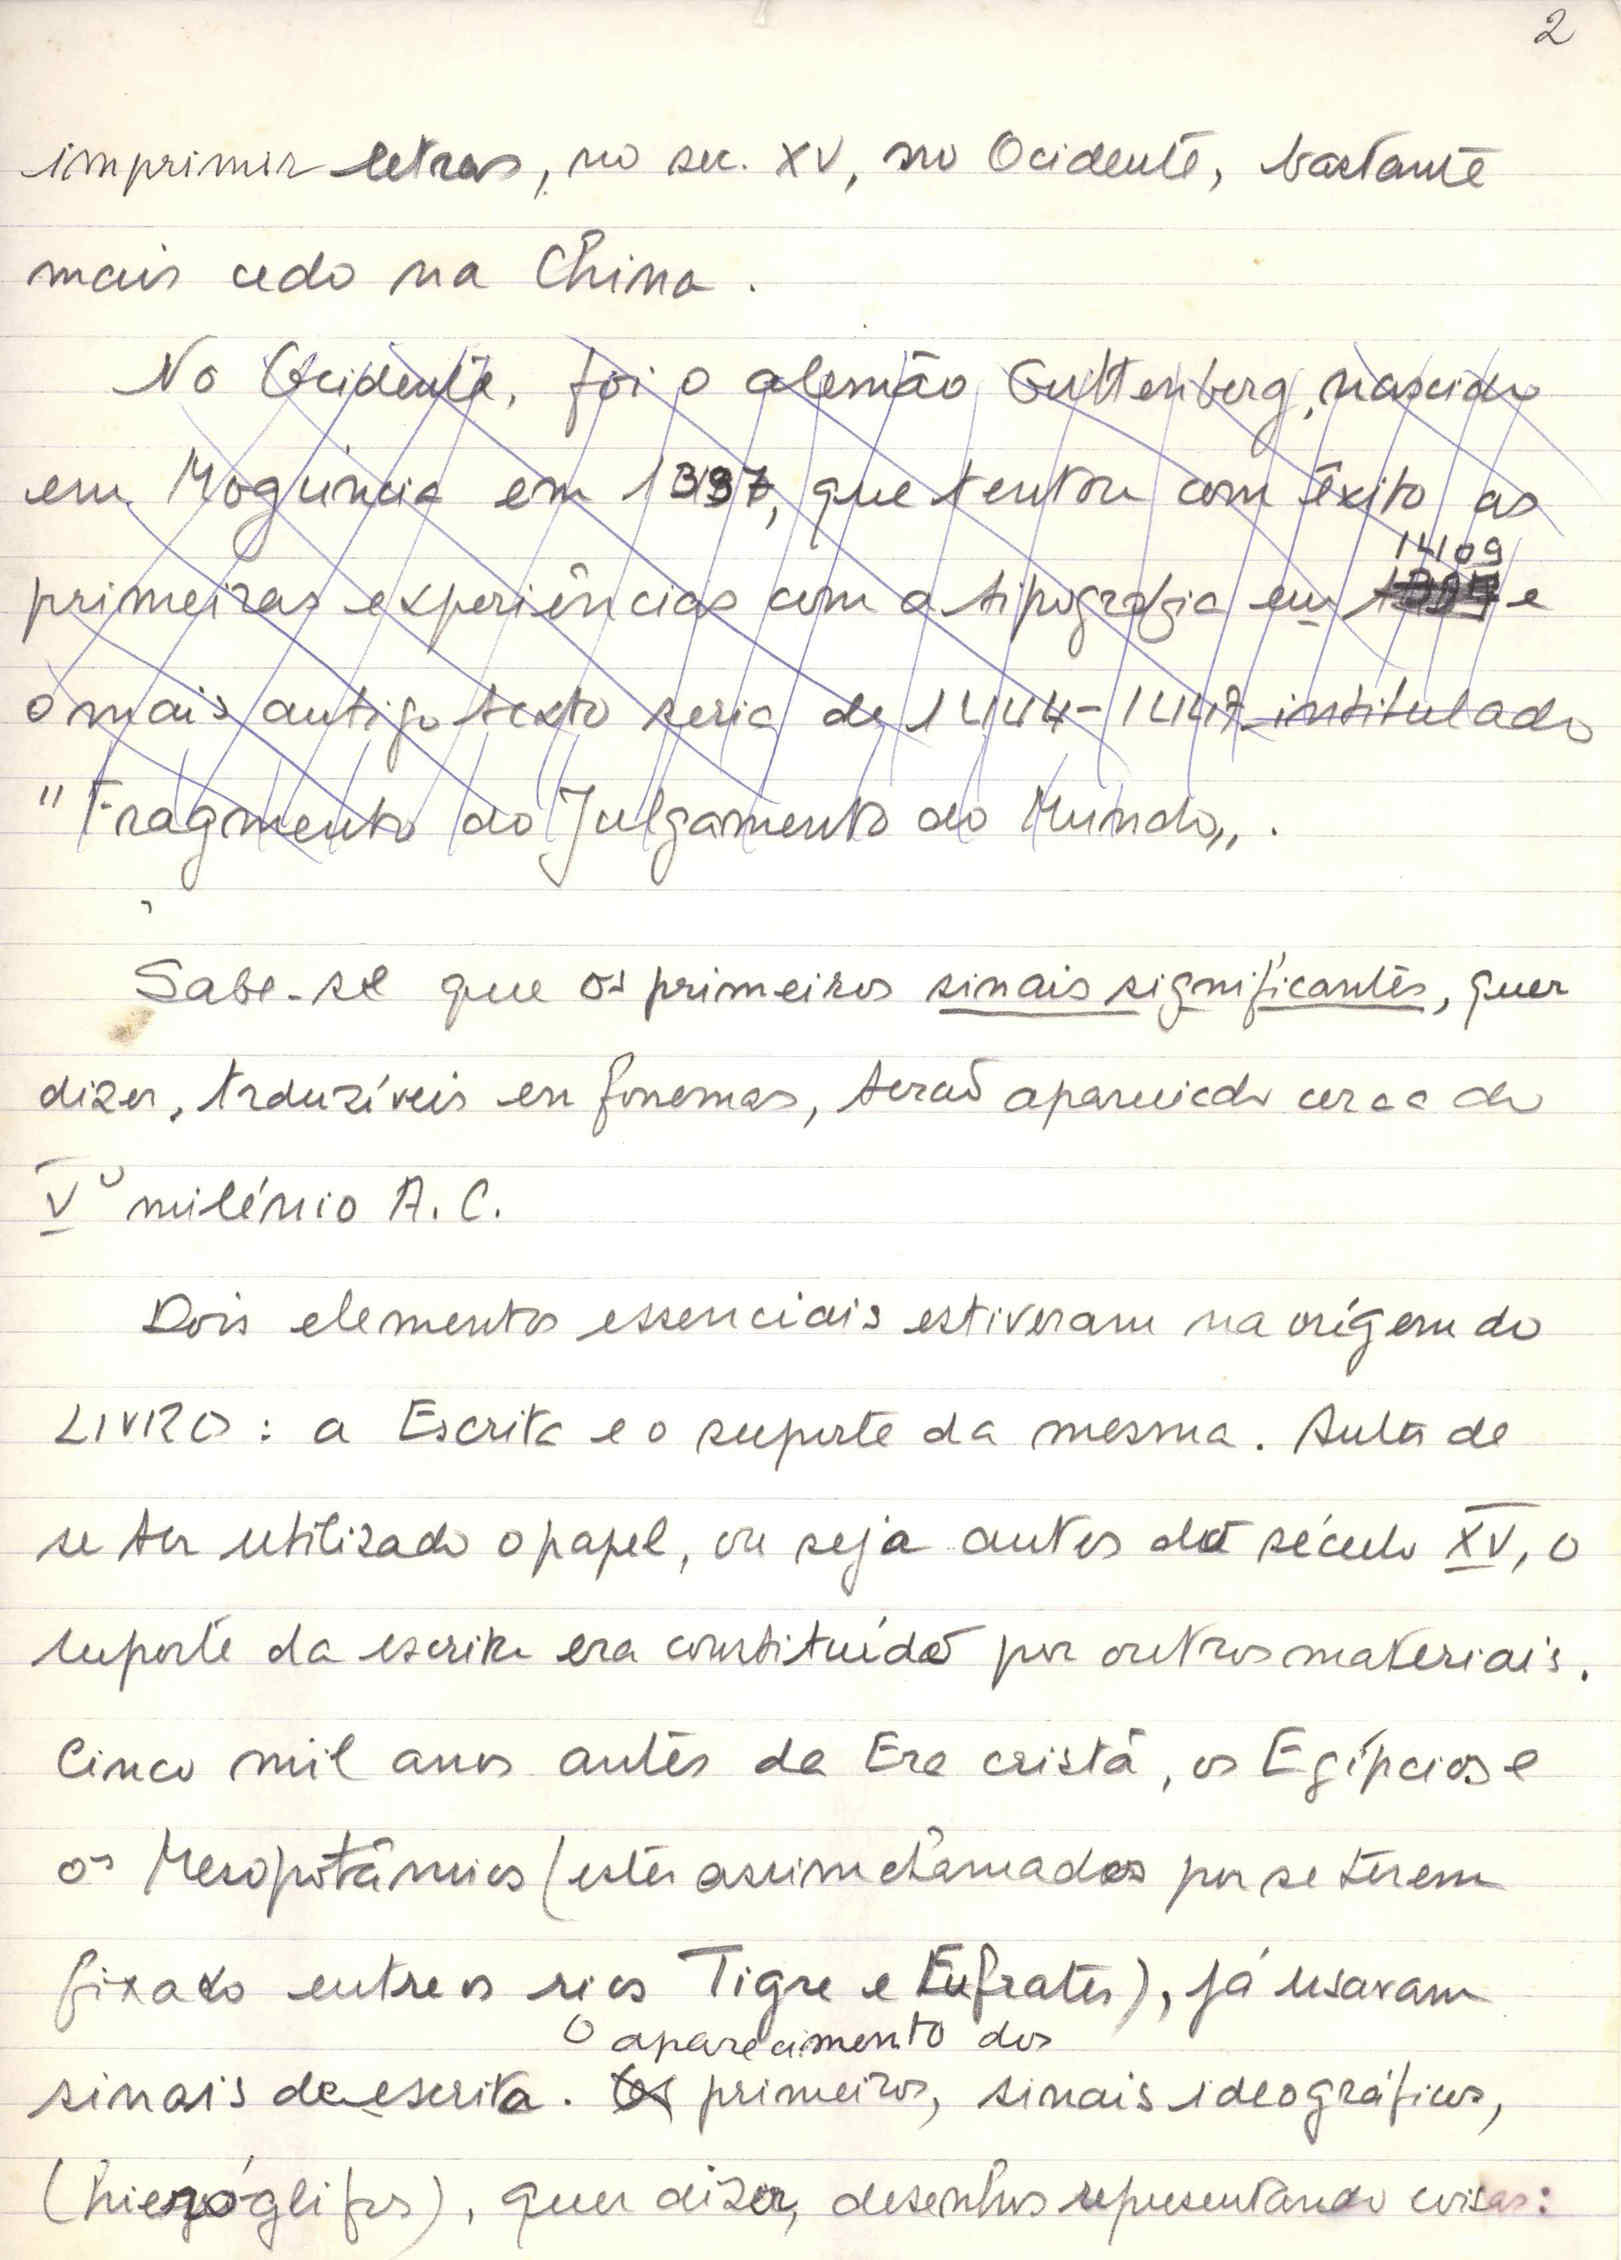 2
imprimir letras, no sec. XV, no Ocidente, bastante
mais cedo na China.
No Ocidente, foi o alemão Guttenberg, nascido
em Mogúncia em 1397, que tentou com êxito as
1409
primeiras experiências com a tipografia em e
o mais antigo texto seria de 1444-1447 intitulado
"Fragmento do Julgamento do Mundo".
Sabe-se que os primeiros sinais significantes, quer
dizer, traduzíveis em fonemas, terão aparecido cerca do
Vº milénio A.C.
Dois elementos essenciais estiveram na origem do
LIVRO: a Escrita e o suporte da mesma. Antes de
se ter utilizado o papel, ou seja antes do século XV, o
suporte da escrita era constituído por outros materiais.
Cinco mil anos antes da Era cristã, os Egípcios e
os Mesopotâmios (estes assim chamados por se terem
fixado entre os rios Tigre e Eufrates), já usavam
O aparecimento dos
sinais de escrita. Os primeiros, sinais ideográficos,
(hieróglifos), quer dizer, desenhos representando coisas: